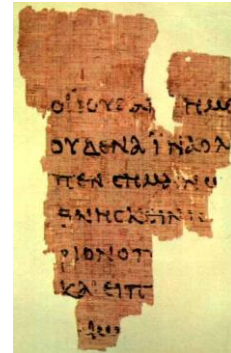 ΟΙ ΙΟΥΔΑΙ ΗΜΕ
ΟΥΔΕΝΑ ΙΝΑ Ο Λ
ΠΕΝ ϹΗΜΑΙΝΩ
ΘΝΗϹΚΕΙΝ
ΡΙΟΝ Ο Π
ΚΑΙ ΕΙΠ